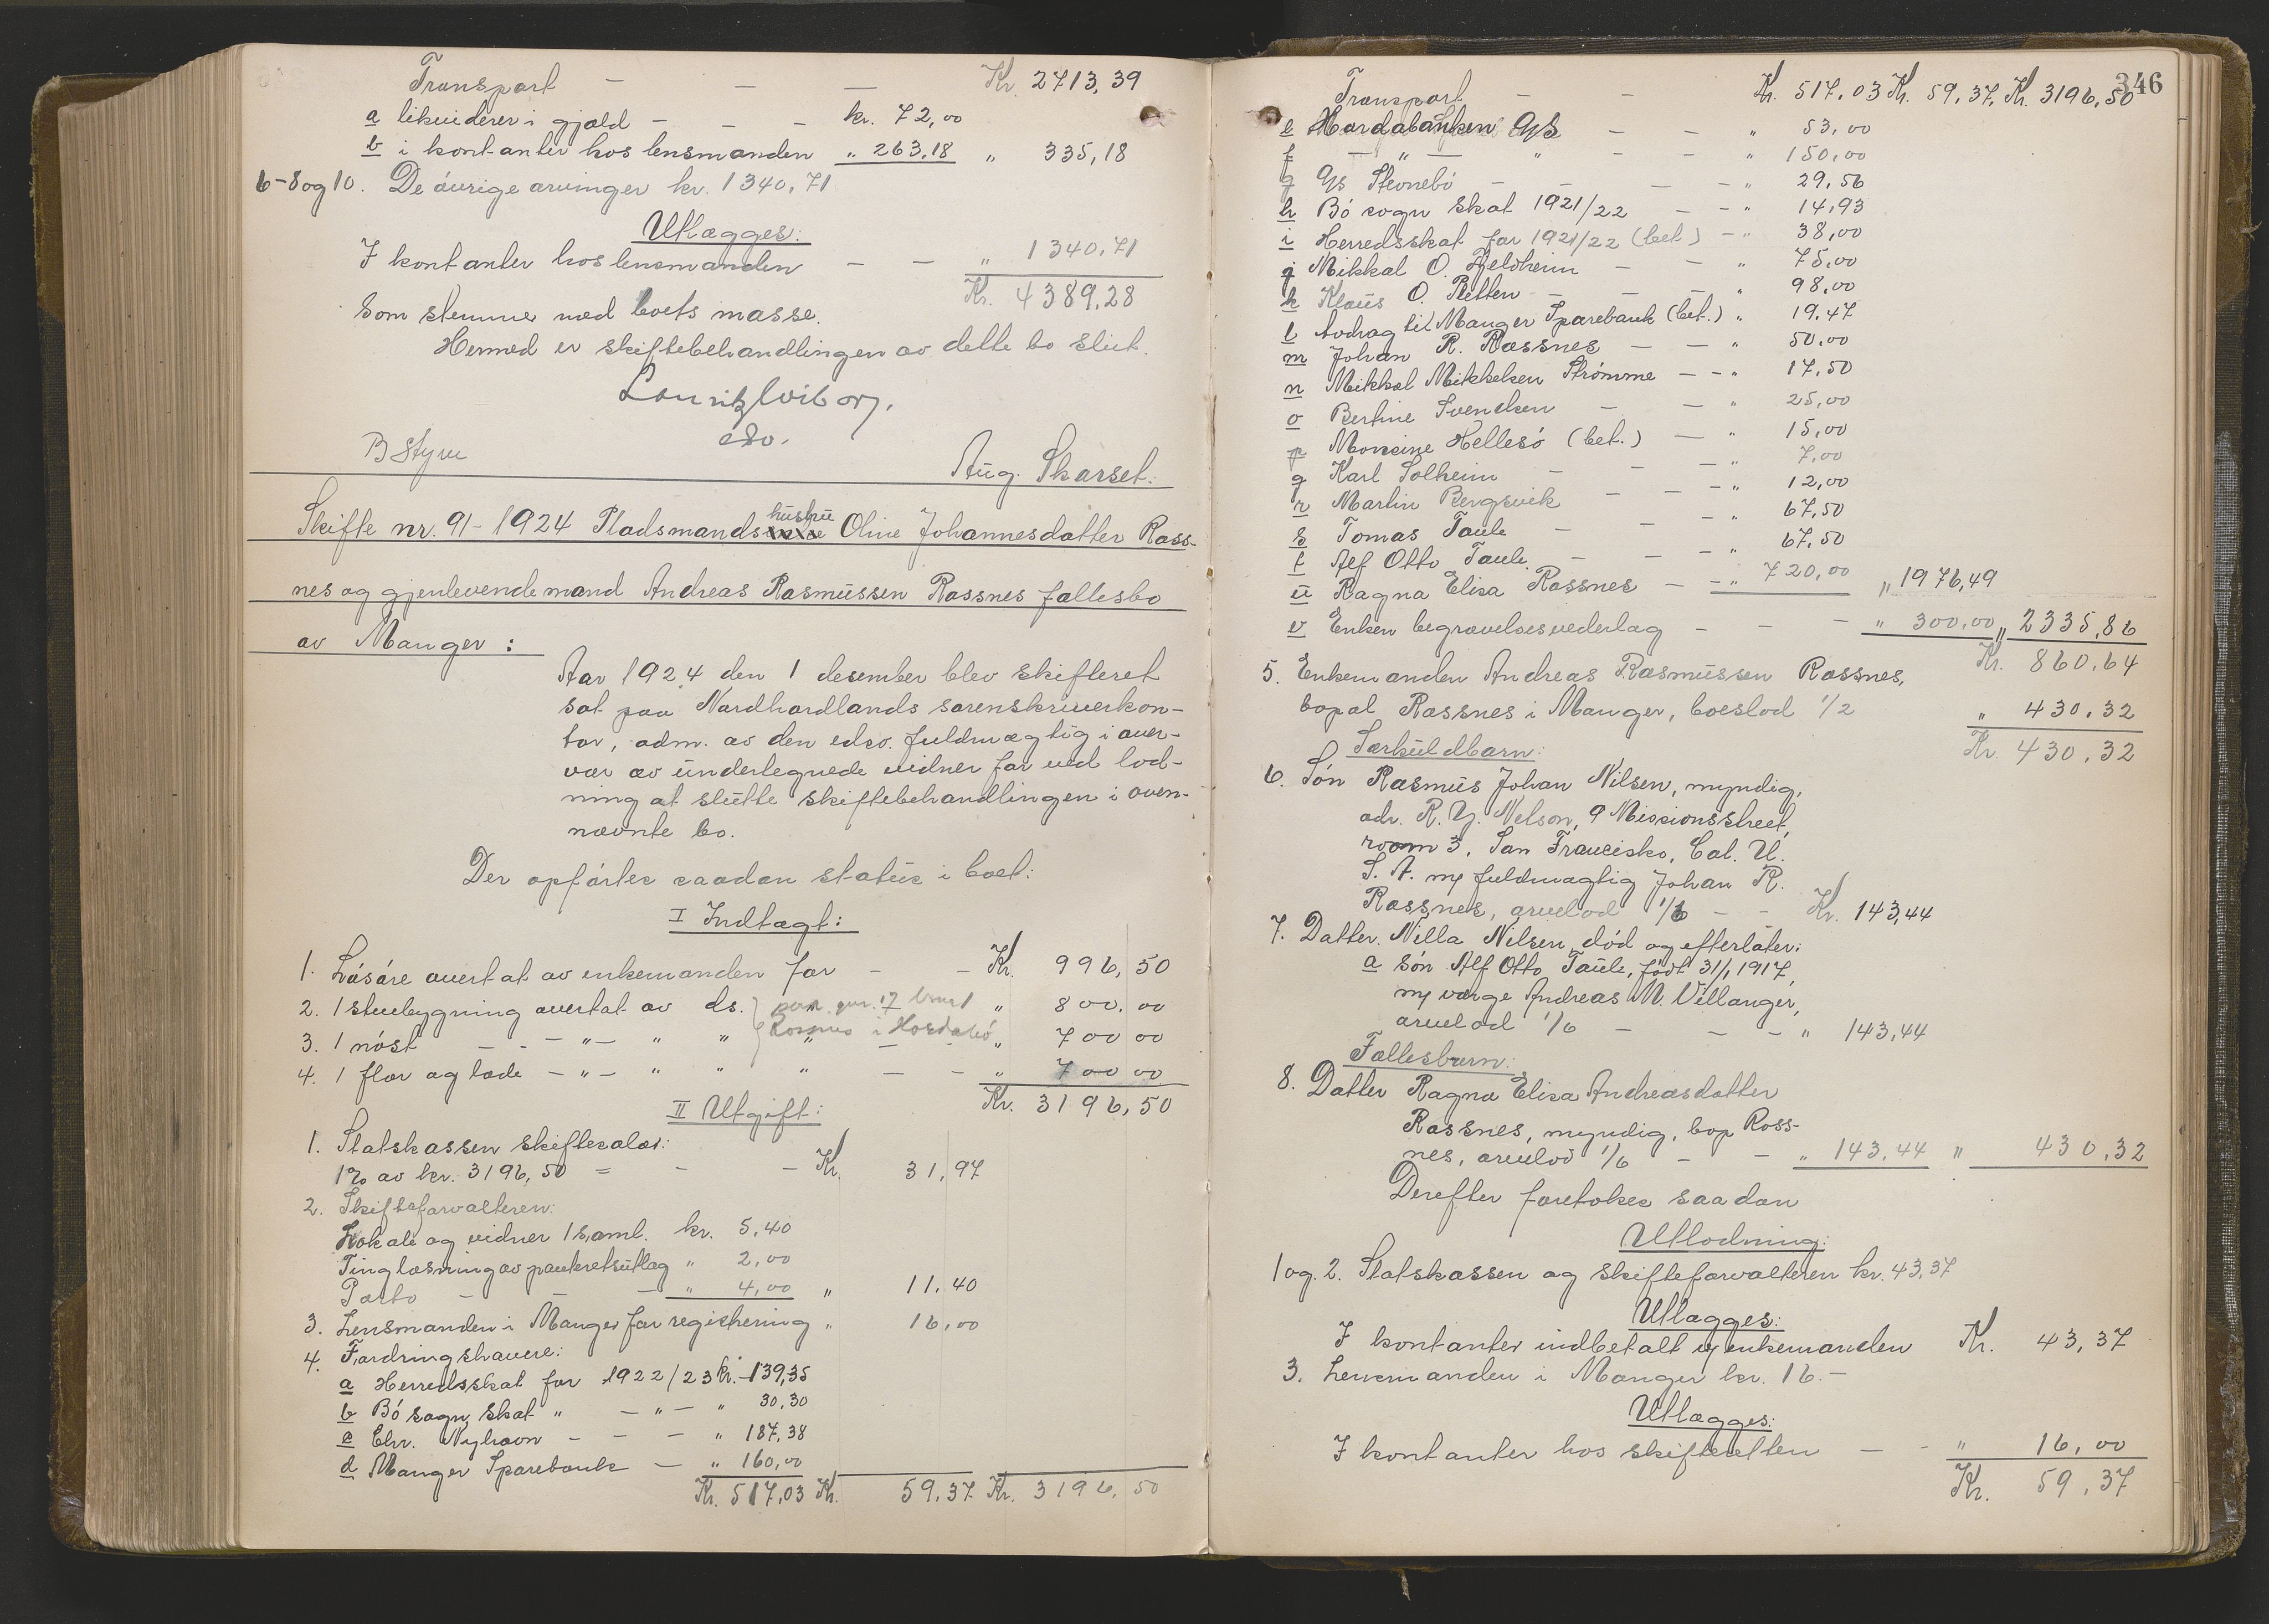 Transport - - - Kr. 2713,39
a likviderer i gjæld - - - kr. 72,00
b i kontanter hos lensmanden „ 263,18 „ 335,18
6-8 og 10. De øvrige arvinger kr. 1340,71
Utlægges:
I kontanter hos lensmanden - - „ 1340,71
Kr. 4389,28
Som stemmer med boets masse.
Hermed er skiftebehandlingen av dette bo slut.
Lauritz Wiborg.
edv.
B Styve
Aug. Skarset.
Skifte nr. 91-1924 Pladsmandshustru Oline Johannesdatter Ross-
nes og gjenlevende mand Andreas Rasmussen Rossnes fællesbo
av Manger:
Aar 1924 den 1 desember blev skifteret
sat paa Nordhordlands sorenskriverkon-
tor, adm. av den edsv. fuldmægtig i over-
vær av undertegnede vidner for ved lod-
ning at slutte skiftebehandlingen i oven-
nævnte bo.
Der opførtes saadan status i boet:
I Indtægt:
1. Løsøre overtat av enkemanden for - - Kr. 996,50
2. 1 stuebygning overtat av ds. paa gnr. 17 bnr 1 „ 800,00
3. 1 nøst - - - „ - „ „ Rossnes i Hordabø „ 700 00
4. 1 flor og lade - „ - „ „ „ - - „ 700 00
Kr. 3196,50
II Utgift:
1. Statskassen skiftesalær:
1% av kr. 3196,50 = - - Kr. 31,97
2. Skifteforvalteren:
Lokale og vidner 1 saml. kr. 5,40
Tinglæsning av panteretsutlæg „ 2,00
Porto - - - „ 4,00 „ 11,40
3. Lensmanden i Manger for registrering „ 16,00
4. Fordringshavere:
a Herredsskat for 1922/23 kr. 139,35
b Bø sogn skat „ - „ - „ 30,30
c Chr. Nyhavn - - - „ 187,38
d Manger Sparebank - „ 160,00
Kr. 517,03 Kr. 59,37 Kr. 3196,50
346
Transport - - Kr. 517,03 Kr. 59,37, Kr. 3196,50
e Hordabanken A/S - - „ 53,00
f - „ - „ - - „ 150,00
g A/S Stevnebø - - - - „ 29,56
h Bø sogn skat 1921/22 - - „ 14,93
i Herredsskat for 1921/22 (bet.) - „ 38,00
j Mikkal O. Fjeldheim - - „ 75,00
k Klaus O. Pletten - - - „ 98,00
l Avdrag til Manger Sparebank (bet.) „ 19,47
m Johan R. Rossnes - - „ 50,00
n Mikkal Mikkelsen Strømme - - „ 17,50
o Bertine Svendsen - - „ 25,00
p Monsine Hellesø (bet.) - „ 15,00
q Karl Solheim - - - „ 7,00
r Martin Bergsvik - - - „ 12,00
s Tomas Taule - - - „ 67,50
t Alf Otto Taule. - - - „ 67,50
u Ragna Elisa Rossnes - - „ 720,00 „ 1976,49
v Enken begravelsesvederlag - - - „ 300,00 „ 2335,86
Kr. 860,64
5. Enkemanden Andreas Rasmussen Rossnes,
bopæl Rossnes i Manger, boeslod 1/2 „ 430,32
Kr. 430,32
Særkuldbarn:
6. Søn Rasmus Johan Nilsen, myndig,
adr. R. Y. Nelson, 9 Missionsstreet,
room 3, San Francisko, Cal. U.
S. A. m/ fuldmægtig Johan R.
Rossnes, arvelod 1/6 - - Kr. 143,44
7. Datter. Nilla Nilsen død og efterlater:
a Søn Alf Otto Taule, født 31/1 1917,
m/ værge Andreas N. Villanger,
arvelod 1/6 - - - „ 143,44
Fællesbarn:
8. Datter Ragna Elisa Andreasdatter
Rossnes, myndig, bop Ross-
nes, arvelod 1/6 - - „ 143,44 „ 430,32
Derefter foretokes saadan
Utlodning:
1 og 2. Statskassen og skifteforvalteren kr. 43,37
Utlægges:
I kontanter indbetalt av enkemanden Kr. 43,37
3. Lensmanden i Manger kr. 16.-
Utlægges:
I kontanter hos skifteretten - - „ 16,00
Kr. 59,37